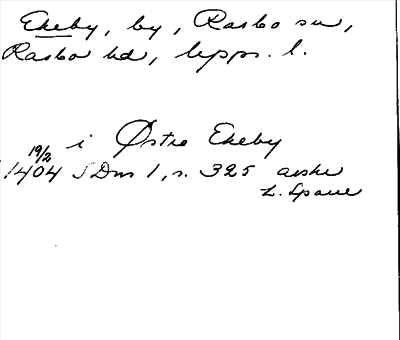 Ekeby, by, Rasbo sn,
Rasbo hd, Upps. l.
i Østra Ekeby
19/2
1404 SDns 1, s. 325 avskr
L. Sparre